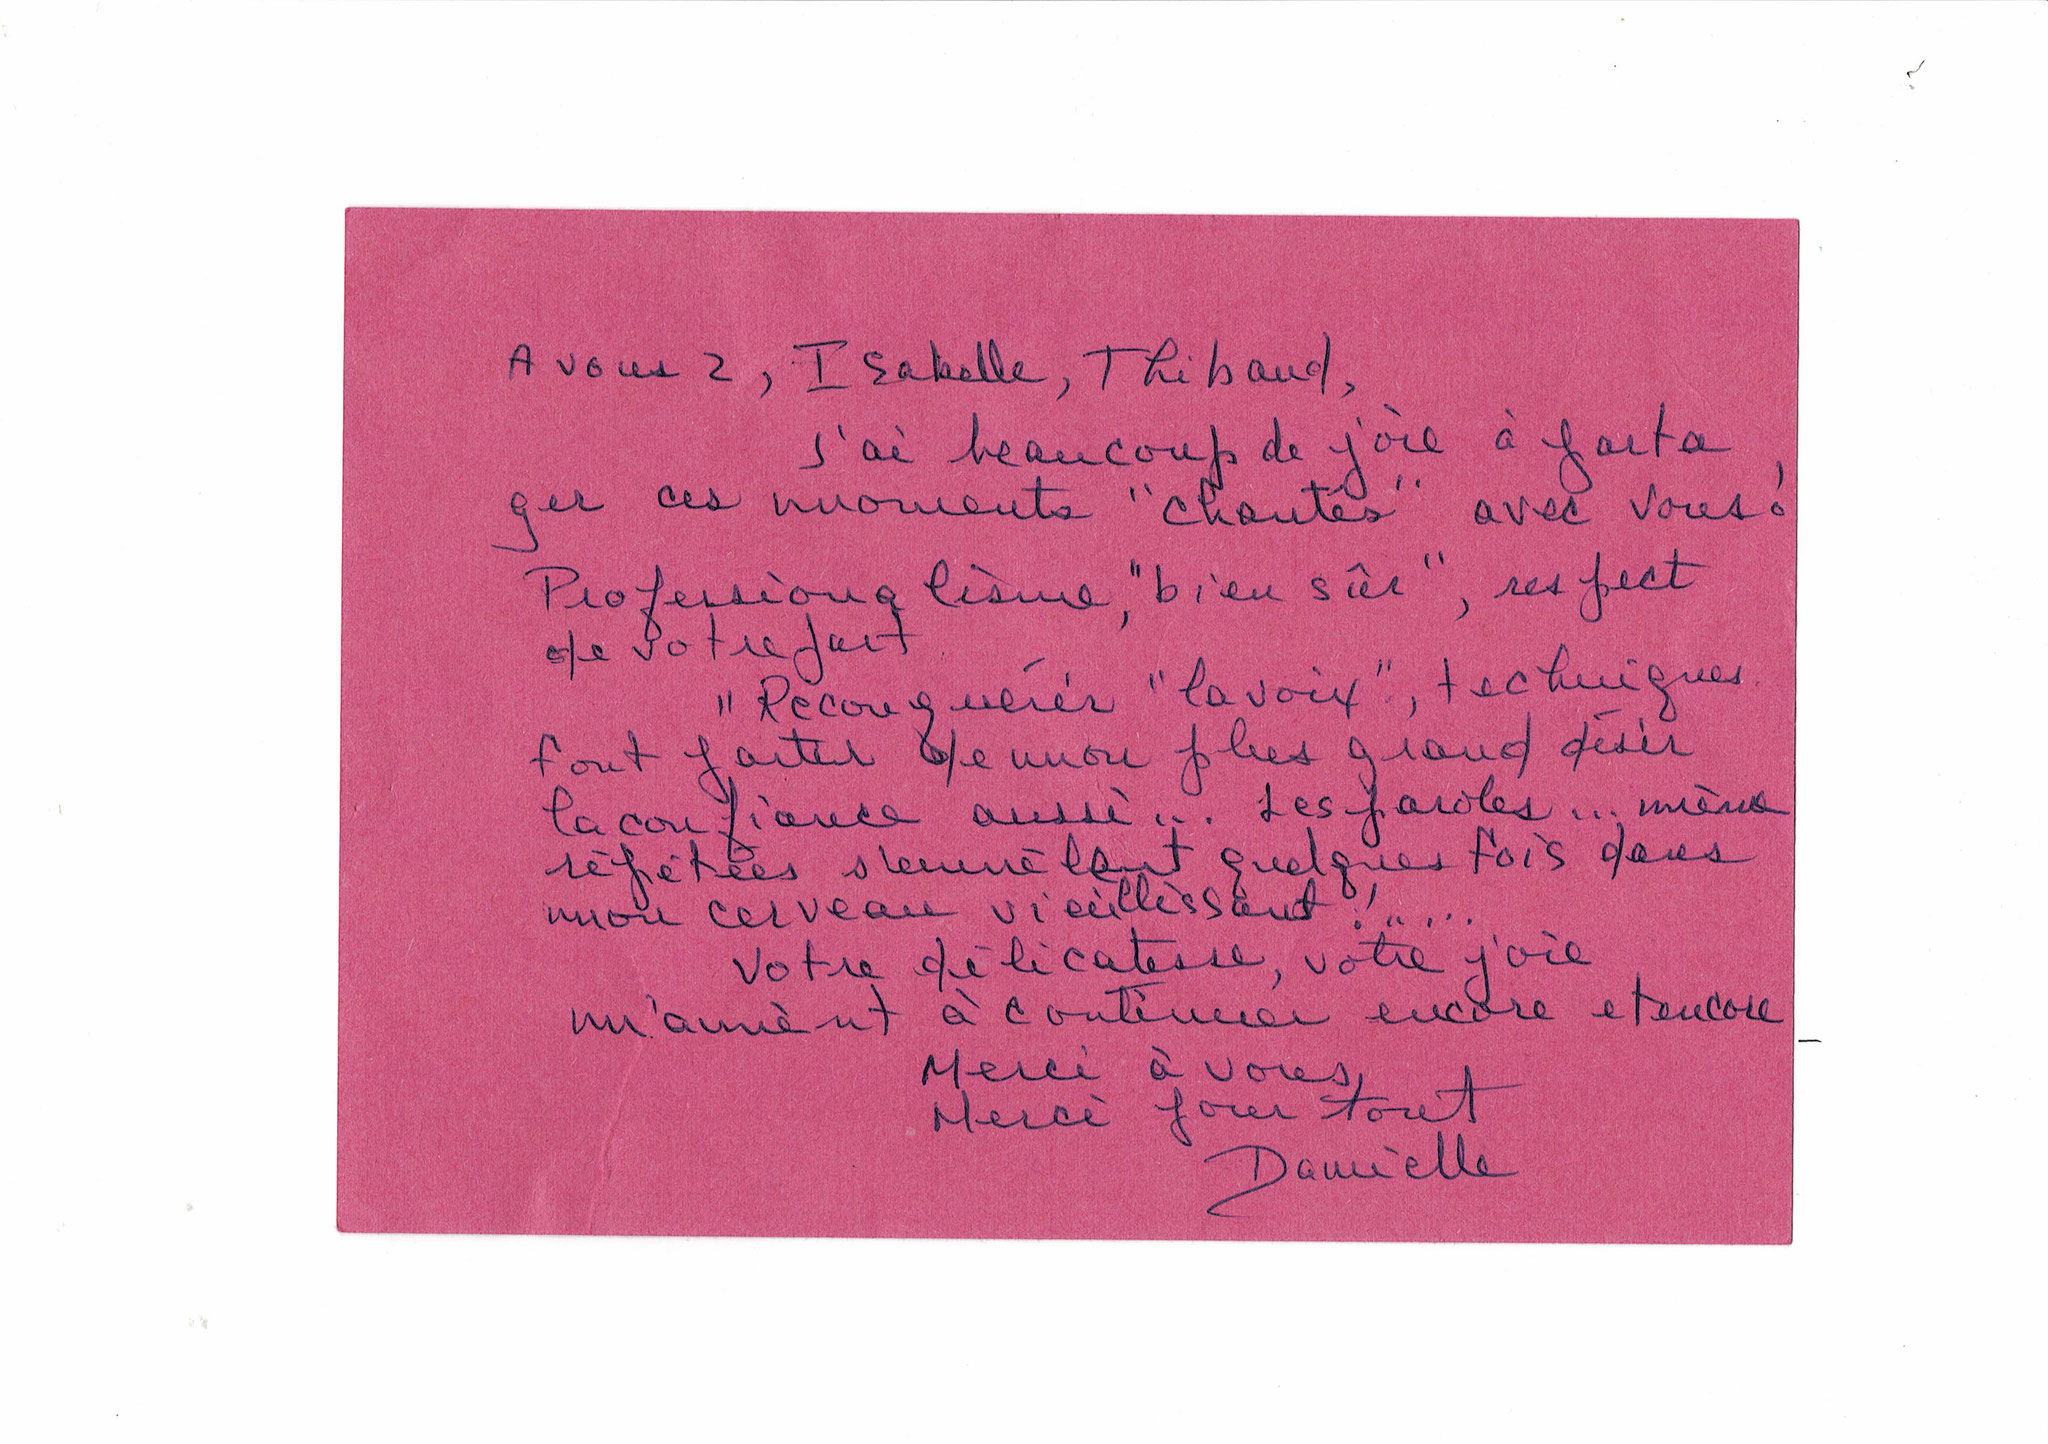 A vous 2, Isabelle, Thibaud,
J'ai beaucoup de joie à parta
ger ces moments "chantés" avec vous !
Professionalisme, "bien sûr", respect
de votre part
"Reconquérir "la voix", techniques
font partir de mon plus grand désir
la confiance aussi... Les paroles... même
répétées s'emmêlent quelques fois dans
mon cerveau vieillissant !.....
Votre délicatesse, votre joie
m'amènt à continuer encore et encore
Merci à vous,
Merci pour tout
Danielle